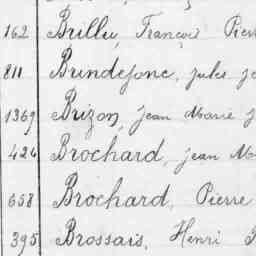 162 Brillu, François Pierr
811 Brindejonc, jules je
1369 Brizon, jean Marie j
426 Brochard, jean Ma
658 Brochard, Pierre
395 Brossais, Henri